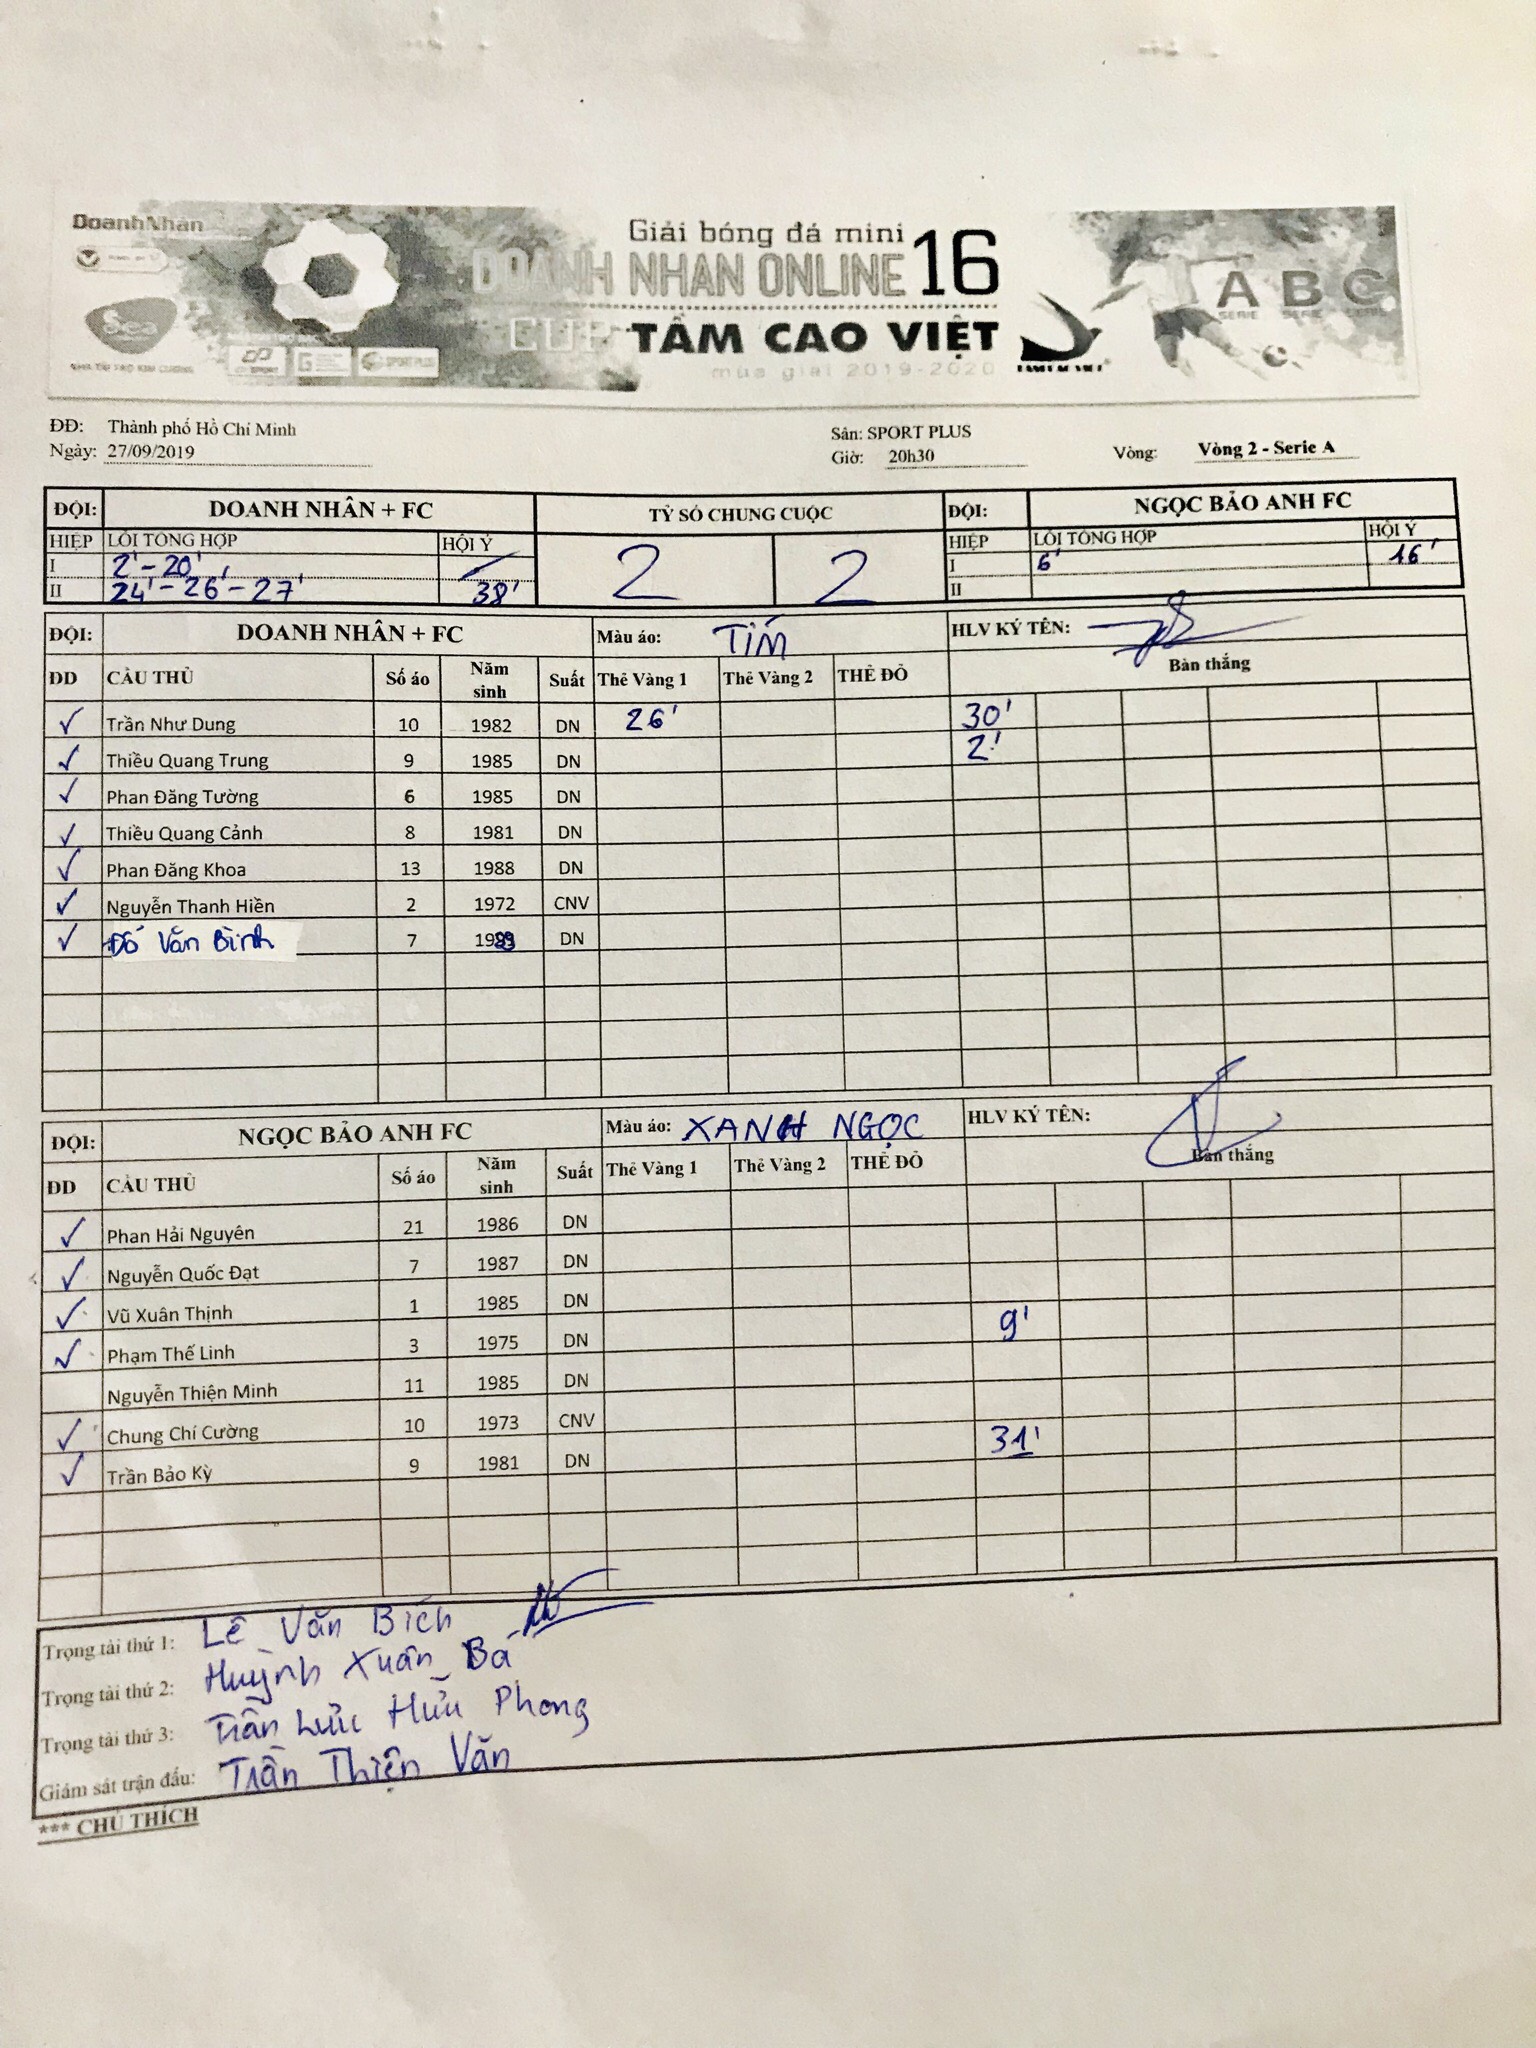 DoanhNhân
Sea
NHÀ TÀI TRỢ KIM CƯƠNG
SPORT PLUS
Giải bóng đá mini
DOANH NHÂN ONLINE 16
CUP TẦM CAO VIỆT
mùa giải 2019-2020
A B C
SERIE SERIE SERIE
ĐĐ: Thành phố Hồ Chí Minh Sân: SPORT PLUS
Ngày: 27/09/2019 Giờ: 20h30 Vòng: Vòng 2 - Serie A
ĐỘI: DOANH NHÂN + FC TỶ SỐ CHUNG CUỘC ĐỘI: NGỌC BẢO ANH FC
HIỆP LỖI TỔNG HỢP HỘI Ý 2 2 HIỆP LỖI TỔNG HỢP HỘI Ý
I 2' - 20' I 6' 16'
II 24' - 26' - 27' 38' II
ĐỘI: DOANH NHÂN + FC Màu áo: TÍM HLV KÝ TÊN:
ĐD CẦU THỦ Số áo Năm sinh Suất Thẻ Vàng 1 Thẻ Vàng 2 THẺ ĐỎ Bàn thắng
✓ Trần Như Dung 10 1982 DN 26' 30'
✓ Thiều Quang Trung 9 1985 DN 2'
✓ Phan Đăng Tường 6 1985 DN
✓ Thiều Quang Cảnh 8 1981 DN
✓ Phan Đăng Khoa 13 1988 DN
✓ Nguyễn Thanh Hiền 2 1972 CNV
✓ Đỗ Văn Bình 7 DN
ĐỘI: NGỌC BẢO ANH FC Màu áo: XANH NGỌC HLV KÝ TÊN:
ĐD CẦU THỦ Số áo Năm sinh Suất Thẻ Vàng 1 Thẻ Vàng 2 THẺ ĐỎ Bàn thắng
✓ Phan Hải Nguyên 21 1986 DN
✓ Nguyễn Quốc Đạt 7 1987 DN
✓ Vũ Xuân Thịnh 1 1985 DN
✓ Phạm Thế Linh 3 1975 DN 9'
Nguyễn Thiện Minh 11 1985 DN
✓ Chung Chí Cường 10 1973 CNV
✓ Trần Bảo Kỳ 9 1981 DN 31'
Trọng tài thứ 1: Lê Văn Bích
Trọng tài thứ 2: Huỳnh Xuân Bá
Trọng tài thứ 3: Trần Hữu Phong
Giám sát trận đấu: Trần Thiện Văn
*** CHÚ THÍCH